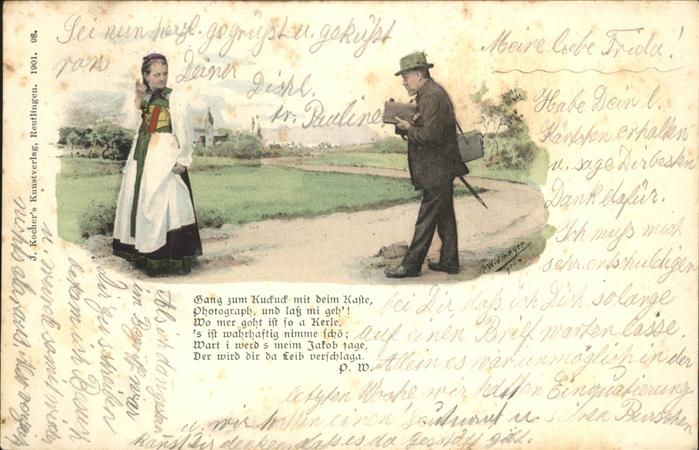 Meine liebe Frida!
Habe Dein l.
Kärtchen erhalten
u. sage Dir besten
Dank dafür.
Ich muß mich
sehr entschuldigen
bei Dir, daß ich Dich so lange
auf einen Brief warten lasse.
Allein es war unmöglich in der
letzten Woche wir hatten Einquatierung
u. wir hatten einen u. seinen Burschen
kannst Dir denken, daß es da gibt.
Als ich dir gestern
im Begriff war
Dir zu schreiben
bekam ich Besuch
u. wurde somit wieder
nichts
Sei nun herzl. gegrüßt u. geküßt
von Deiner
Dichl.
tr. Pauline
J. Kocher's Kunstverlag, Reutlingen. 1901. 98.
P. Widmayer
Gang zum Kuckuck mit deim Kaste,
Photograph, und laß mi geh'!
Wo mer goht ist so a Kerle,
's ist wahrhaftig nimme schö;
Wart i werd s meim Jakob sage,
Der wird dir da Leib verschlaga.
P. W.